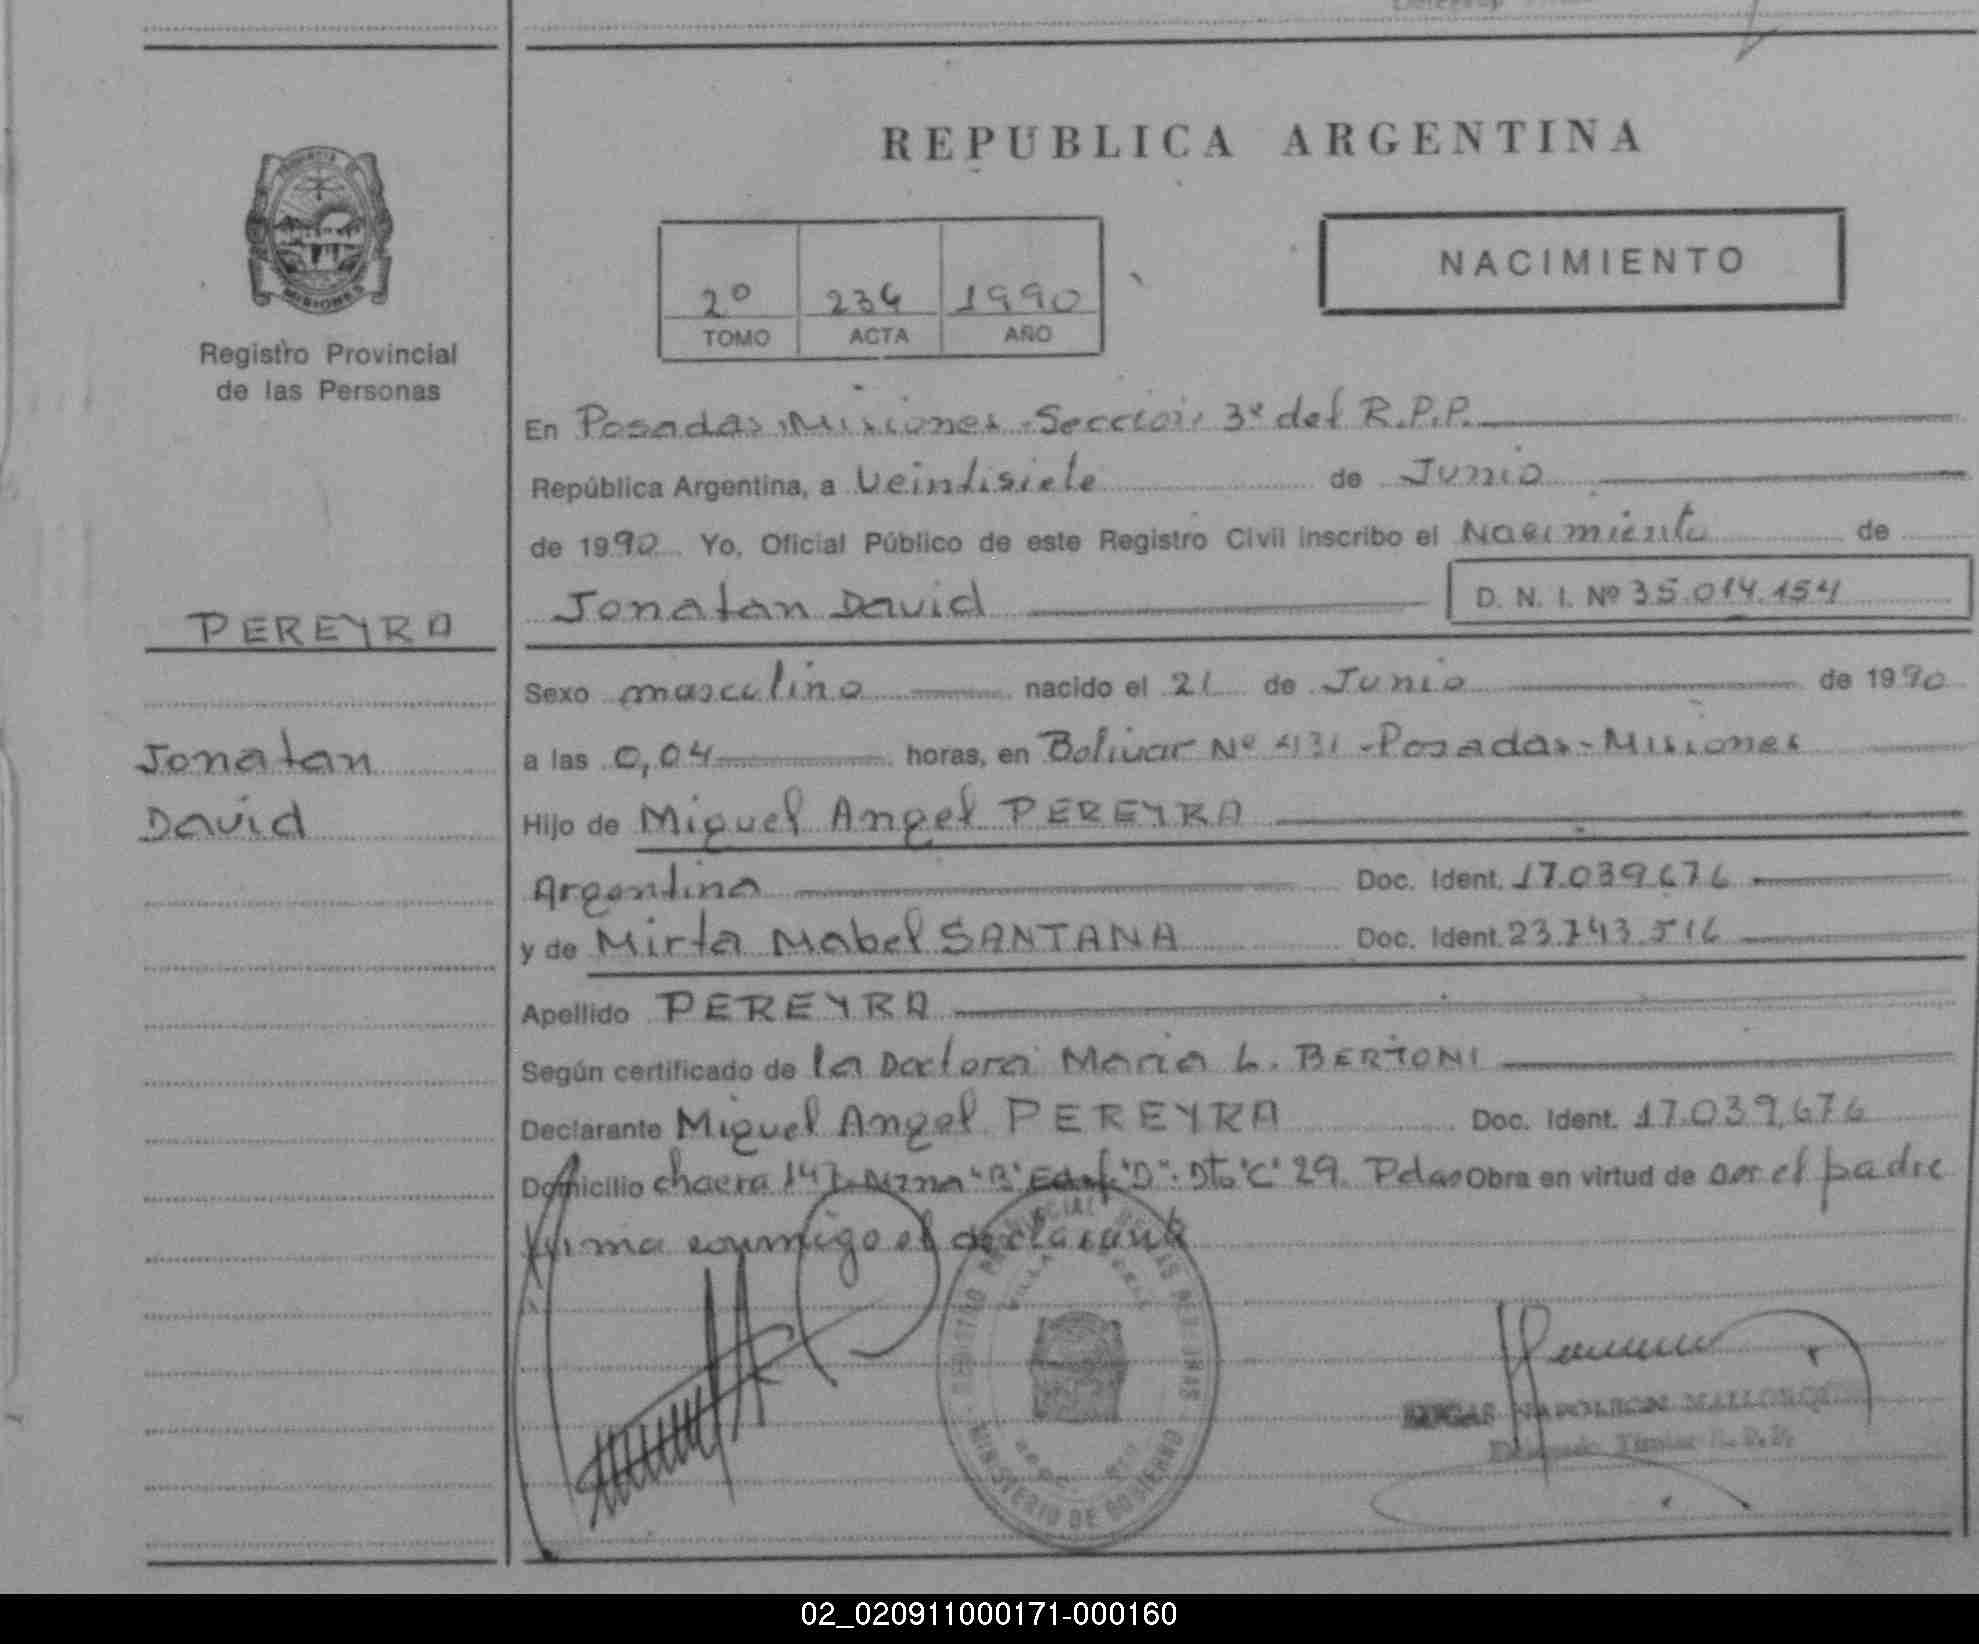 REPUBLICA ARGENTINA
NACIMIENTO
2º 234 1990
TOMO ACTA AÑO
MISIONES
Registro Provincial
de las Personas
PEREYRA
Jonatan
David
En Posadas, Misiones - Sección 3ª del R.P.P.
República Argentina, a Veintisiete de Junio
de 1990 Yo, Oficial Público de este Registro Civil inscribo el Nacimiento de
Jonatan David D. N. I. Nº 35.014.154
Sexo masculino nacido el 21 de Junio de 1990
a las 0,04 horas, en Bolivar Nº 431 - Posadas - Misiones
Hijo de Miguel Angel PEREYRA
Argentina Doc. Ident. 17.039.676
y de Mirta Mabel SANTANA Doc. Ident. 23.743.516
Apellido PEREYRA
Según certificado de la Doctora Maria L. BERTONI
Declarante Miguel Angel PEREYRA Doc. Ident. 17.039.676
Domicilio chacra 147 Mzna "B" Edif. "D" - Dto "C" 29. Pdas Obra en virtud de ser el padre
firma conmigo el declarante
REGISTRO PROVINCIAL DE LAS PERSONAS
MINISTERIO DE GOBIERNO
NAPOLEON
Delegado Titular R.P.P.
02_020911000171-000160